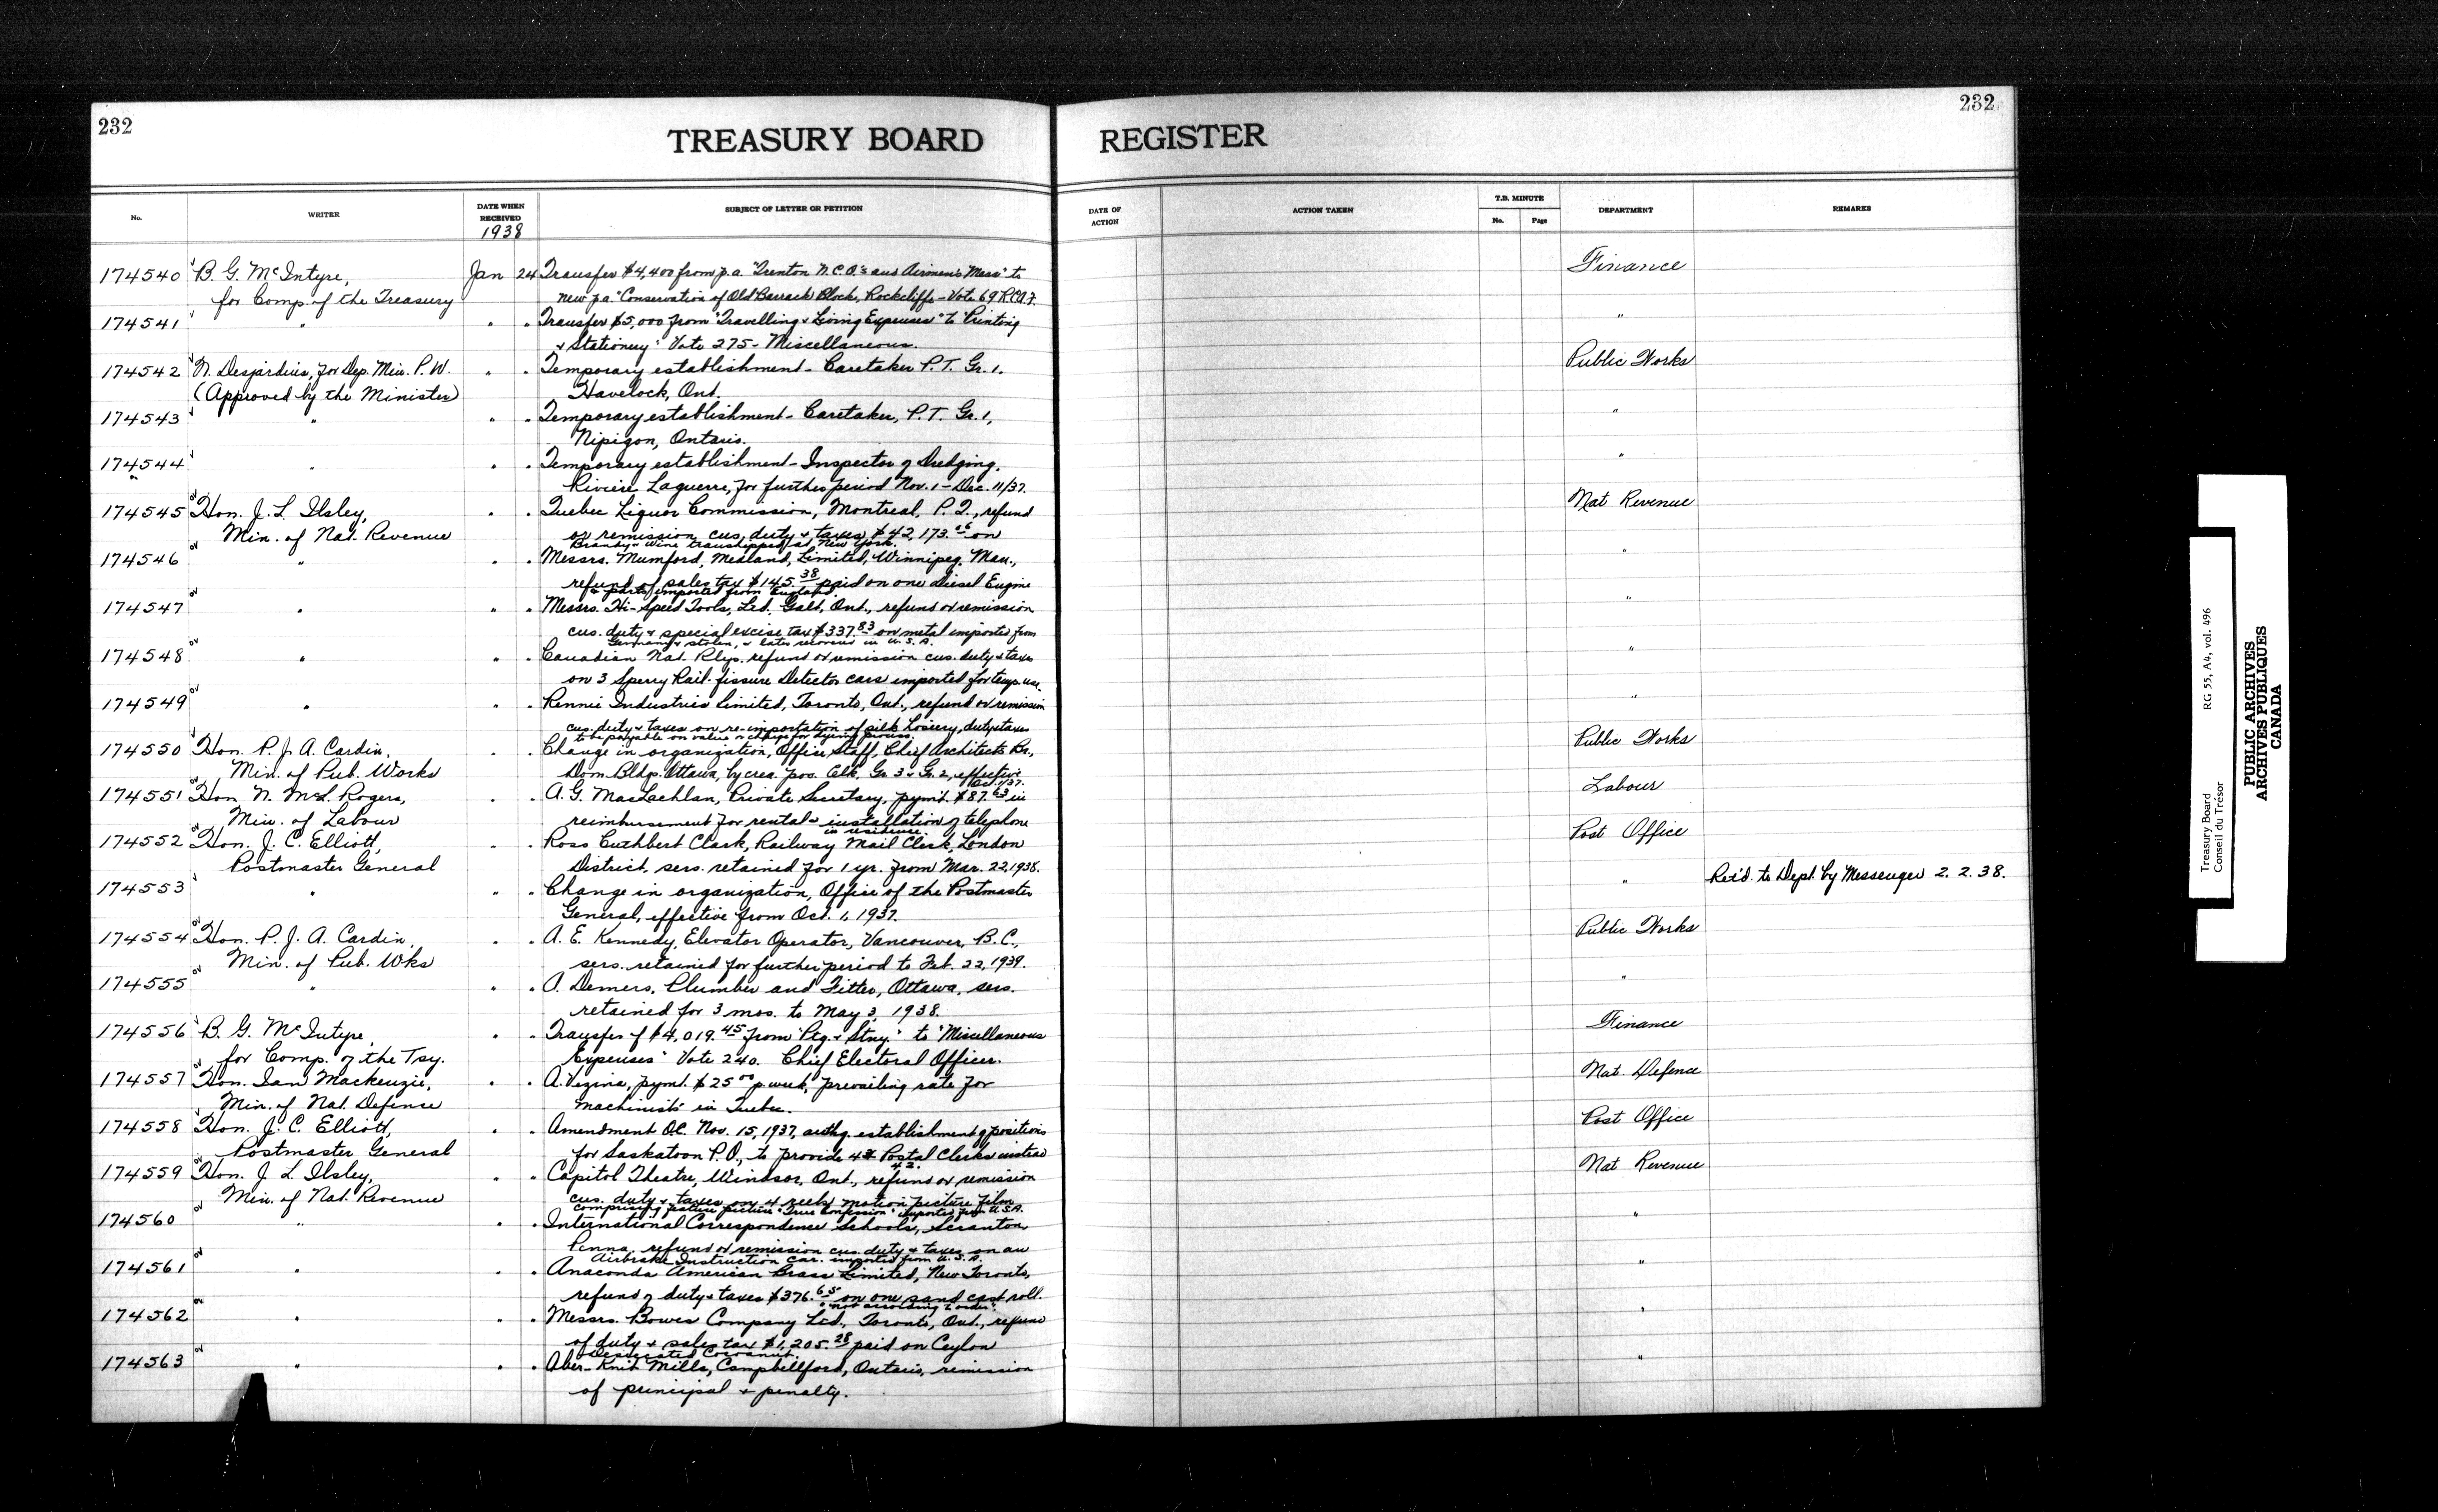 232
TREASURY BOARD
REGISTER
232
No.
WRITER
DATE WHEN RECEIVED
1938
SUBJECT OF LETTER OR PETITION
DATE OF ACTION
ACTION TAKEN
T.B. MINUTE
No.
Page
DEPARTMENT
REMARKS
174540 B. G. McIntyre, Jan 24 Transfer $4,400 from p.a. "Trenton N.C.O.'s and Airmen's Mess" to Finance
for Comp. of the Treasury new p.a. "Conservation of Old Barrack Block, Rockcliffe - Vote 69 R.C.A.F.
174541 " " " Transfer $5,000 from "Travelling & Living Expenses" to "Printing "
& Stationery" Vote 275 - Miscellaneous.
174542 N. Desjardins, for Dep. Min. P.W. " " Temporary establishment - Caretaker P.T. Gr. 1. Public Works
(Approved by the Minister) Havelock, Ont.
174543 " " " Temporary establishment - Caretaker, P.T. Gr. 1, "
Nipigon, Ontario.
174544 " " " Temporary establishment - Inspector of Dredging. "
Riviere Laguerre, for further period Nov. 1 - Dec. 11/37.
174545 Hon. J. L. Ilsley, " " Quebec Liquor Commission, Montreal, P.Q., refund Nat Revenue
Min. of Nat. Revenue or remission cus. duty & taxes, $42,173.16 on
Brandy & Wine transhipped at New York.
174546 " " " Messrs. Mumford, Medland, Limited, Winnipeg, Man., "
refund of sales tax $145.38 paid on one Diesel Engine
& parts imported from England.
174547 " " " Messrs. Hi-Speed Tools, Ltd. Galt, Ont., refund or remission "
cus. duty & special excise tax $337.83 on metal imported from
Germany & stolen, & later recovered in U.S.A.
174548 " " " Canadian Nat. Rlys. refund or remission cus. duty & taxes "
on 3 Sperry Rail-fissure Detector cars imported for temp. use.
174549 " " " Rennie Industries Limited, Toronto, Ont., refund or remission "
cus. duty & taxes on re-importation of silk hosiery, duty & taxes
to be payable on value or charge for dyeing process.
174550 Hon. P. J. A. Cardin, " " Change in organization, Office Staff, Chief Architect's Br., Public Works
Min. of Pub. Works Dom. Bldgs. Ottawa, by crea. pos. Clk. Gr. 3 & Gr. 2, effective
Oct. 1/37.
174551 Hon. N. McL. Rogers, " " A. G. MacLachlan, Private Secretary, pym't. $87.63 in Labour
Min. of Labour reimbursement for rental & installation of telephone
in residence.
174552 Hon. J. C. Elliott, " " Ross Cuthbert Clark, Railway Mail Clerk, London Post Office
Postmaster General District, sers. retained for 1 yr. from Mar. 22, 1938.
174553 " " " Change in organization, Office of the Postmaster " Ret'd. to Dept. by Messenger 2. 2. 38.
General, effective from Oct. 1, 1937.
174554 Hon. P. J. A. Cardin, " " A. E. Kennedy, Elevator Operator, Vancouver, B.C., Public Works
Min. of Pub. Wks sers. retained for further period to Feb. 22, 1939.
174555 " " " A. Demers, Plumber and Fitter, Ottawa, sers. "
retained for 3 mos. to May 3, 1938.
174556 B. G. McIntyre, " " Transfer of $4,019.45 from "Ptg. & Stny." to "Miscellaneous Finance
for Comp. of the Tsy. Expenses" Vote 240. Chief Electoral Officer.
174557 Hon. Ian Mackenzie, " " A. Vezina, pymt. $25.00 p. week, prevailing rate for Nat. Defence
Min. of Nat. Defense machinists in Quebec.
174558 Hon. J. C. Elliott, " " Amendment O.C. Nov. 15, 1937, authg. establishment of positions Post Office
Postmaster General for Saskatoon P.O., to provide Postal Clerks instead
42.
174559 Hon. J. L. Ilsley, " " Capitol Theatre, Windsor, Ont., refund or remission Nat Revenue
Min. of Nat. Revenue cus. duty & taxes on 4 reels motion picture film
comprising feature picture "True Confession" imported from U.S.A.
174560 " " " International Correspondence Schools, Scranton "
Penna, refund or remission cus. duty & taxes on an
Airbrake Instruction Car. imported from U.S.A.
174561 " " " Anaconda American Brass Limited, New Toronto, "
refund of duty & taxes $376.65 on one sand cast roll.
"not according to order".
174562 " " " Messrs. Bowes Company Ltd., Toronto, Ont., refund "
of duty & sales tax $1,205.28 paid on Ceylon
Desiccated Cocoanut.
174563 " " " Aber-Knit Mills, Campbellford, Ontario, remission "
of principal & penalty.
Treasury Board RG 55, A4, vol. 496
Conseil du Trésor
PUBLIC ARCHIVES
ARCHIVES PUBLIQUES
CANADA